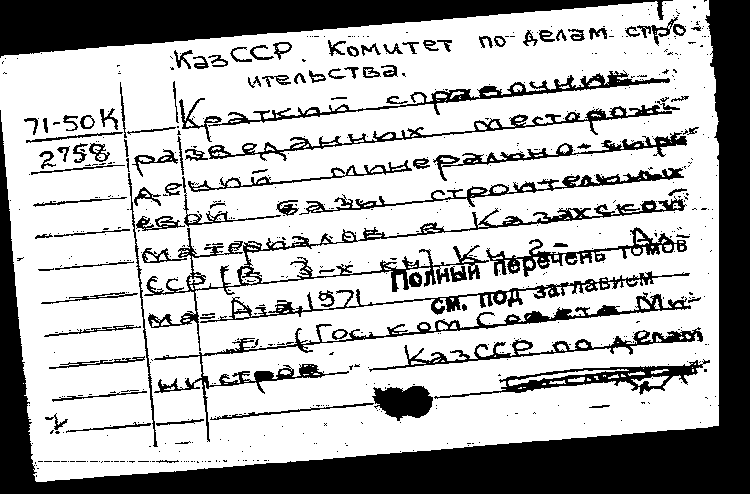 КазССР. Комитет по делам стро-
ительства.
71-50К Краткий справочник
2758 разведанных месторож-
дений минерально-сырь
евой базы строительных
материалов в Казахской
ССР. [В 3-х кн]. Кн. 2- Ал-
ма-Ата, 1971.
Полный перечень томов
см. под заглавием
(Гос. ком Совета Ми-
нистров КазССР по делам